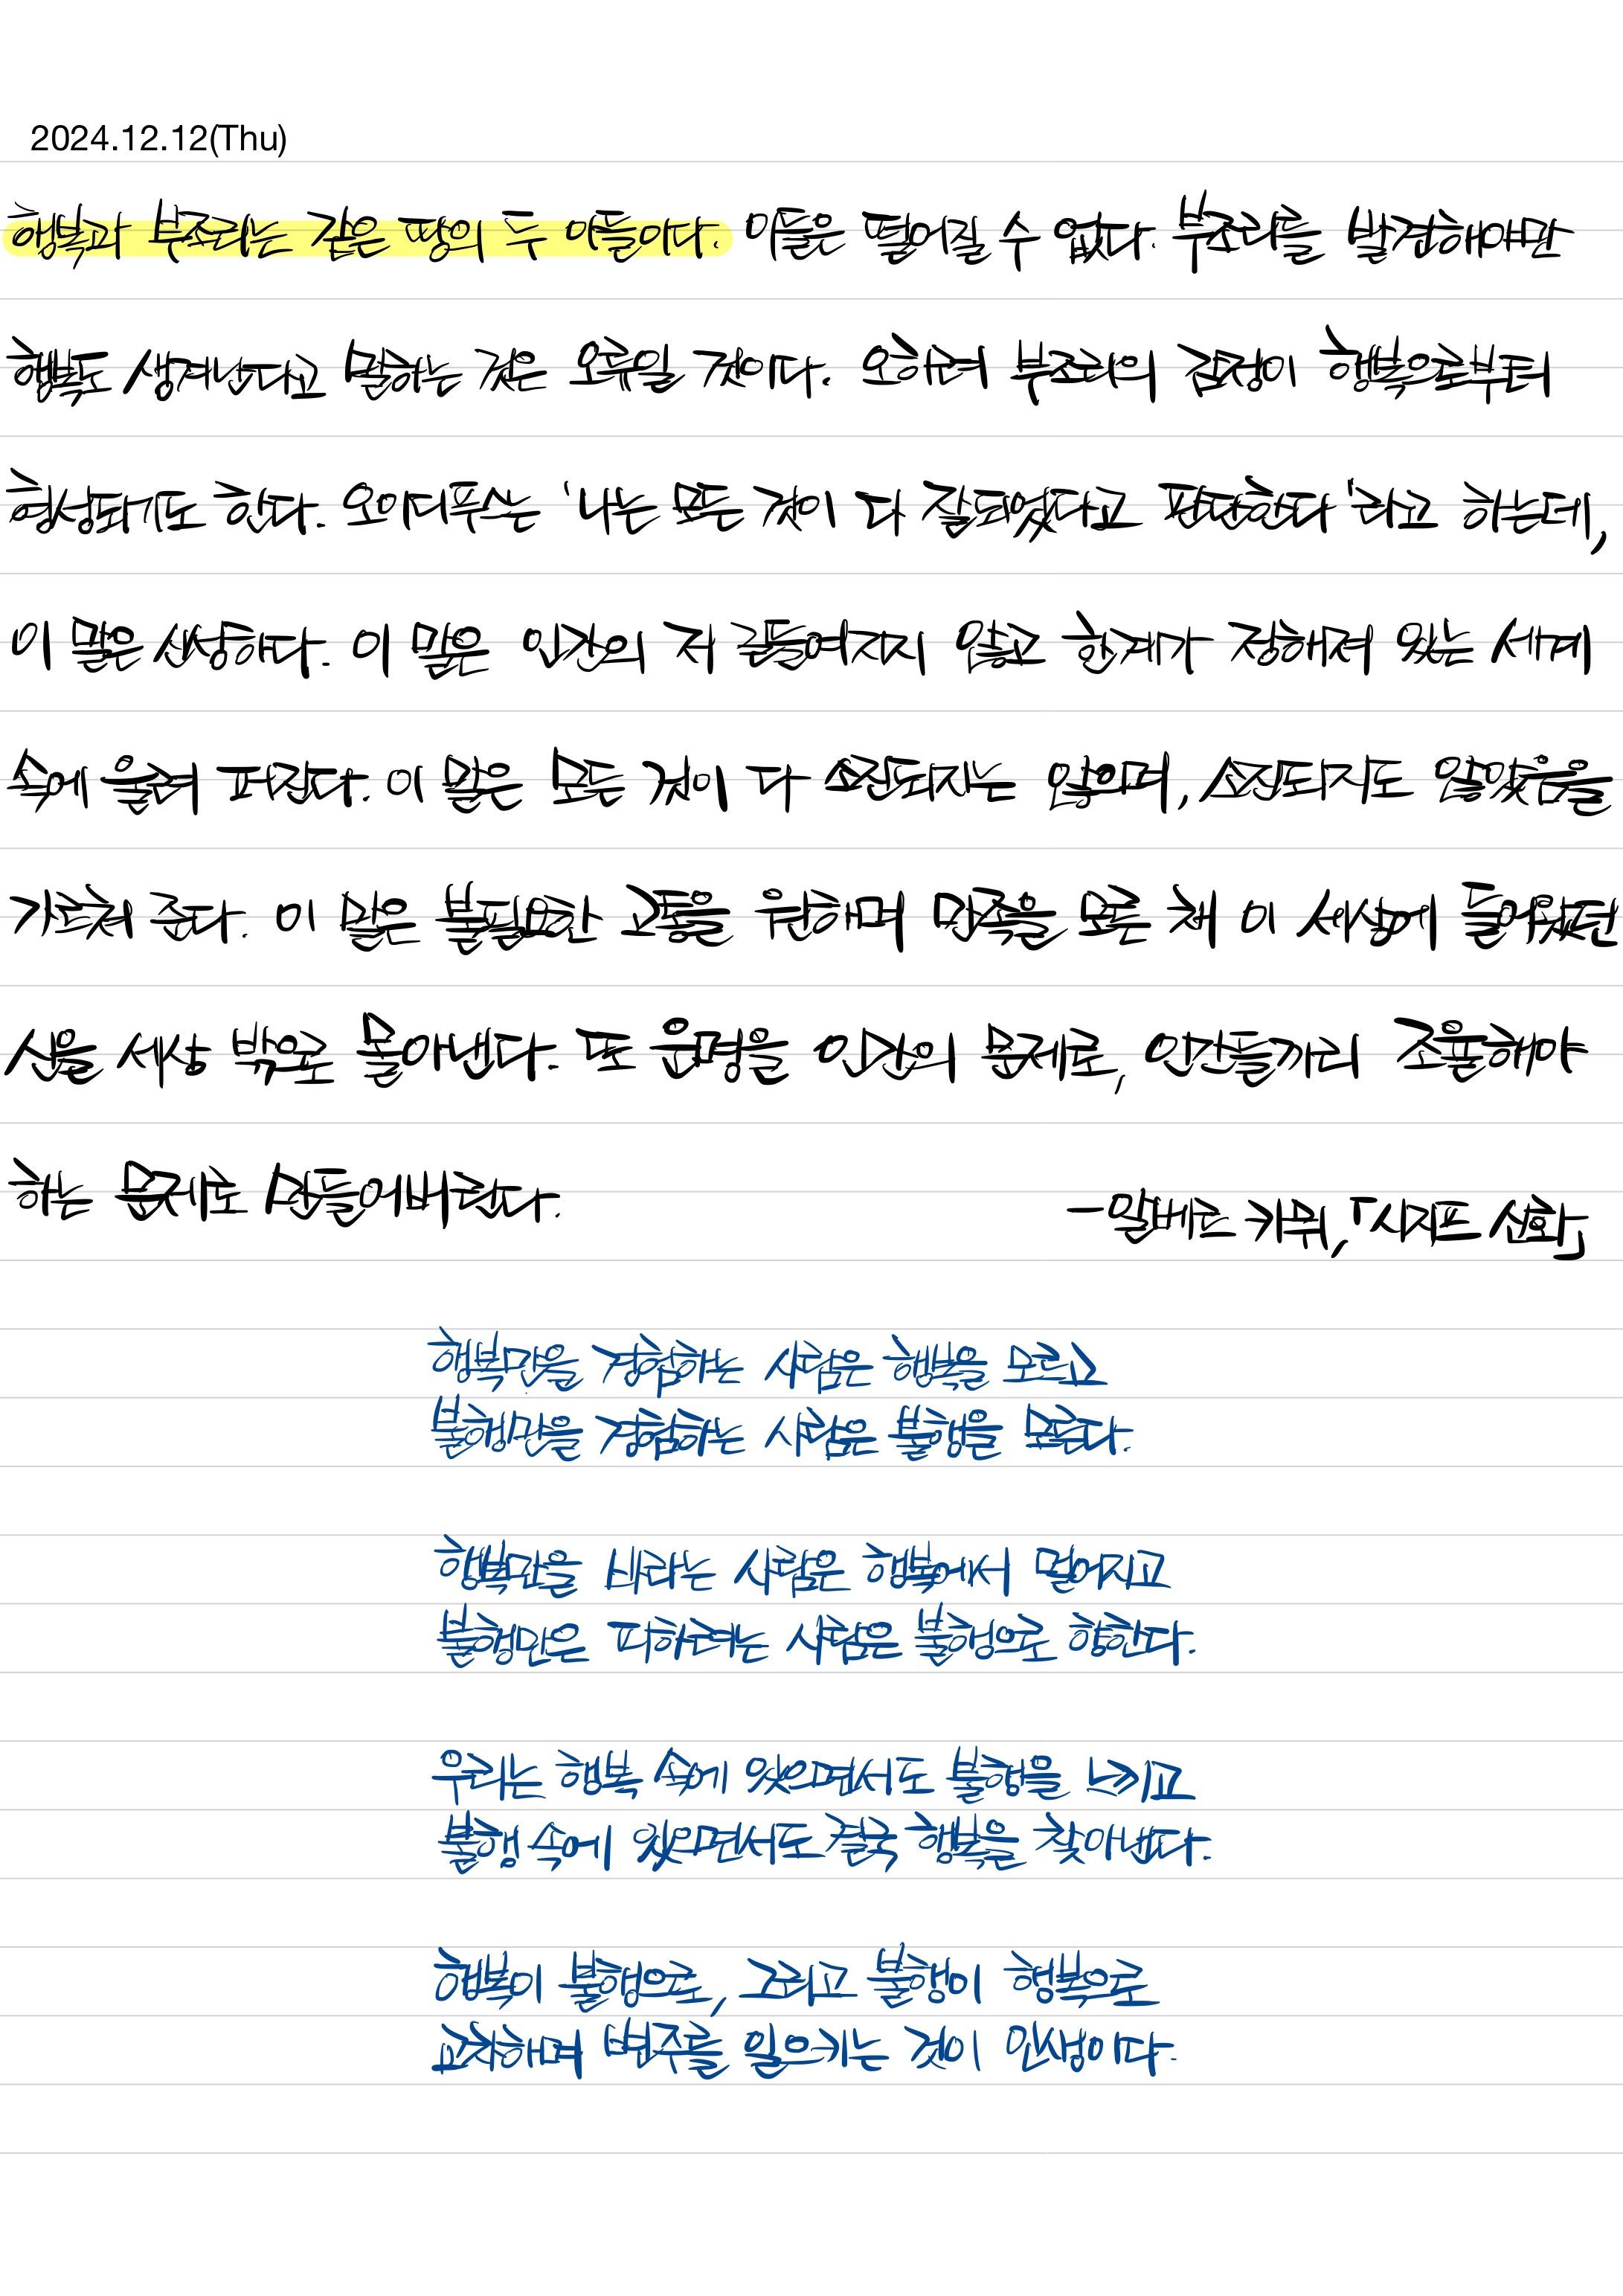 2024.12.12(Thu)
행복과 부조리는 같은 땅의 두 아들이다. 이들은 떨어질 수 없다. 부조리를 발견해야만
행복도 생겨난다고 말하는 것은 오류일 것이다. 오히려 부조리의 감정이 행복으로부터
형성되기도 한다. 오이디푸스는 '나는 모든 것이 다 잘되었다고 판단한다'라고 하는데,
이 말은 신성하다. 이 말은 인간의 저 길들여지지 않고 한계가 정해져 있는 세계
속에 울려 퍼진다. 이 말은 모든 것이 다 소진되지는 않으며, 소진되지도 않았음을
가르쳐 준다. 이 말은 불필요한 고통을 원하며 만족을 모른 채 이 세상에 들어왔던
신을 세상 밖으로 몰아낸다. 또 운명을 인간의 문제로, 인간들끼리 조율해야
하는 문제로 만들어버린다.
-알베르 카뮈, 「시지프 신화」
행복만을 경험하는 사람은 행복을 모르고
불행만을 경험하는 사람은 불행을 모른다.
행복만을 바라는 사람은 행복에서 멀어지고
불행만은 피하려는 사람은 불행으로 향한다.
우리는 행복 속에 있으면서도 불행을 느끼고
불행 속에 있으면서도 결국 행복을 찾아낸다.
행복이 불행으로, 그리고 불행이 행복으로
교차하며 변주를 일으키는 것이 인생이다.